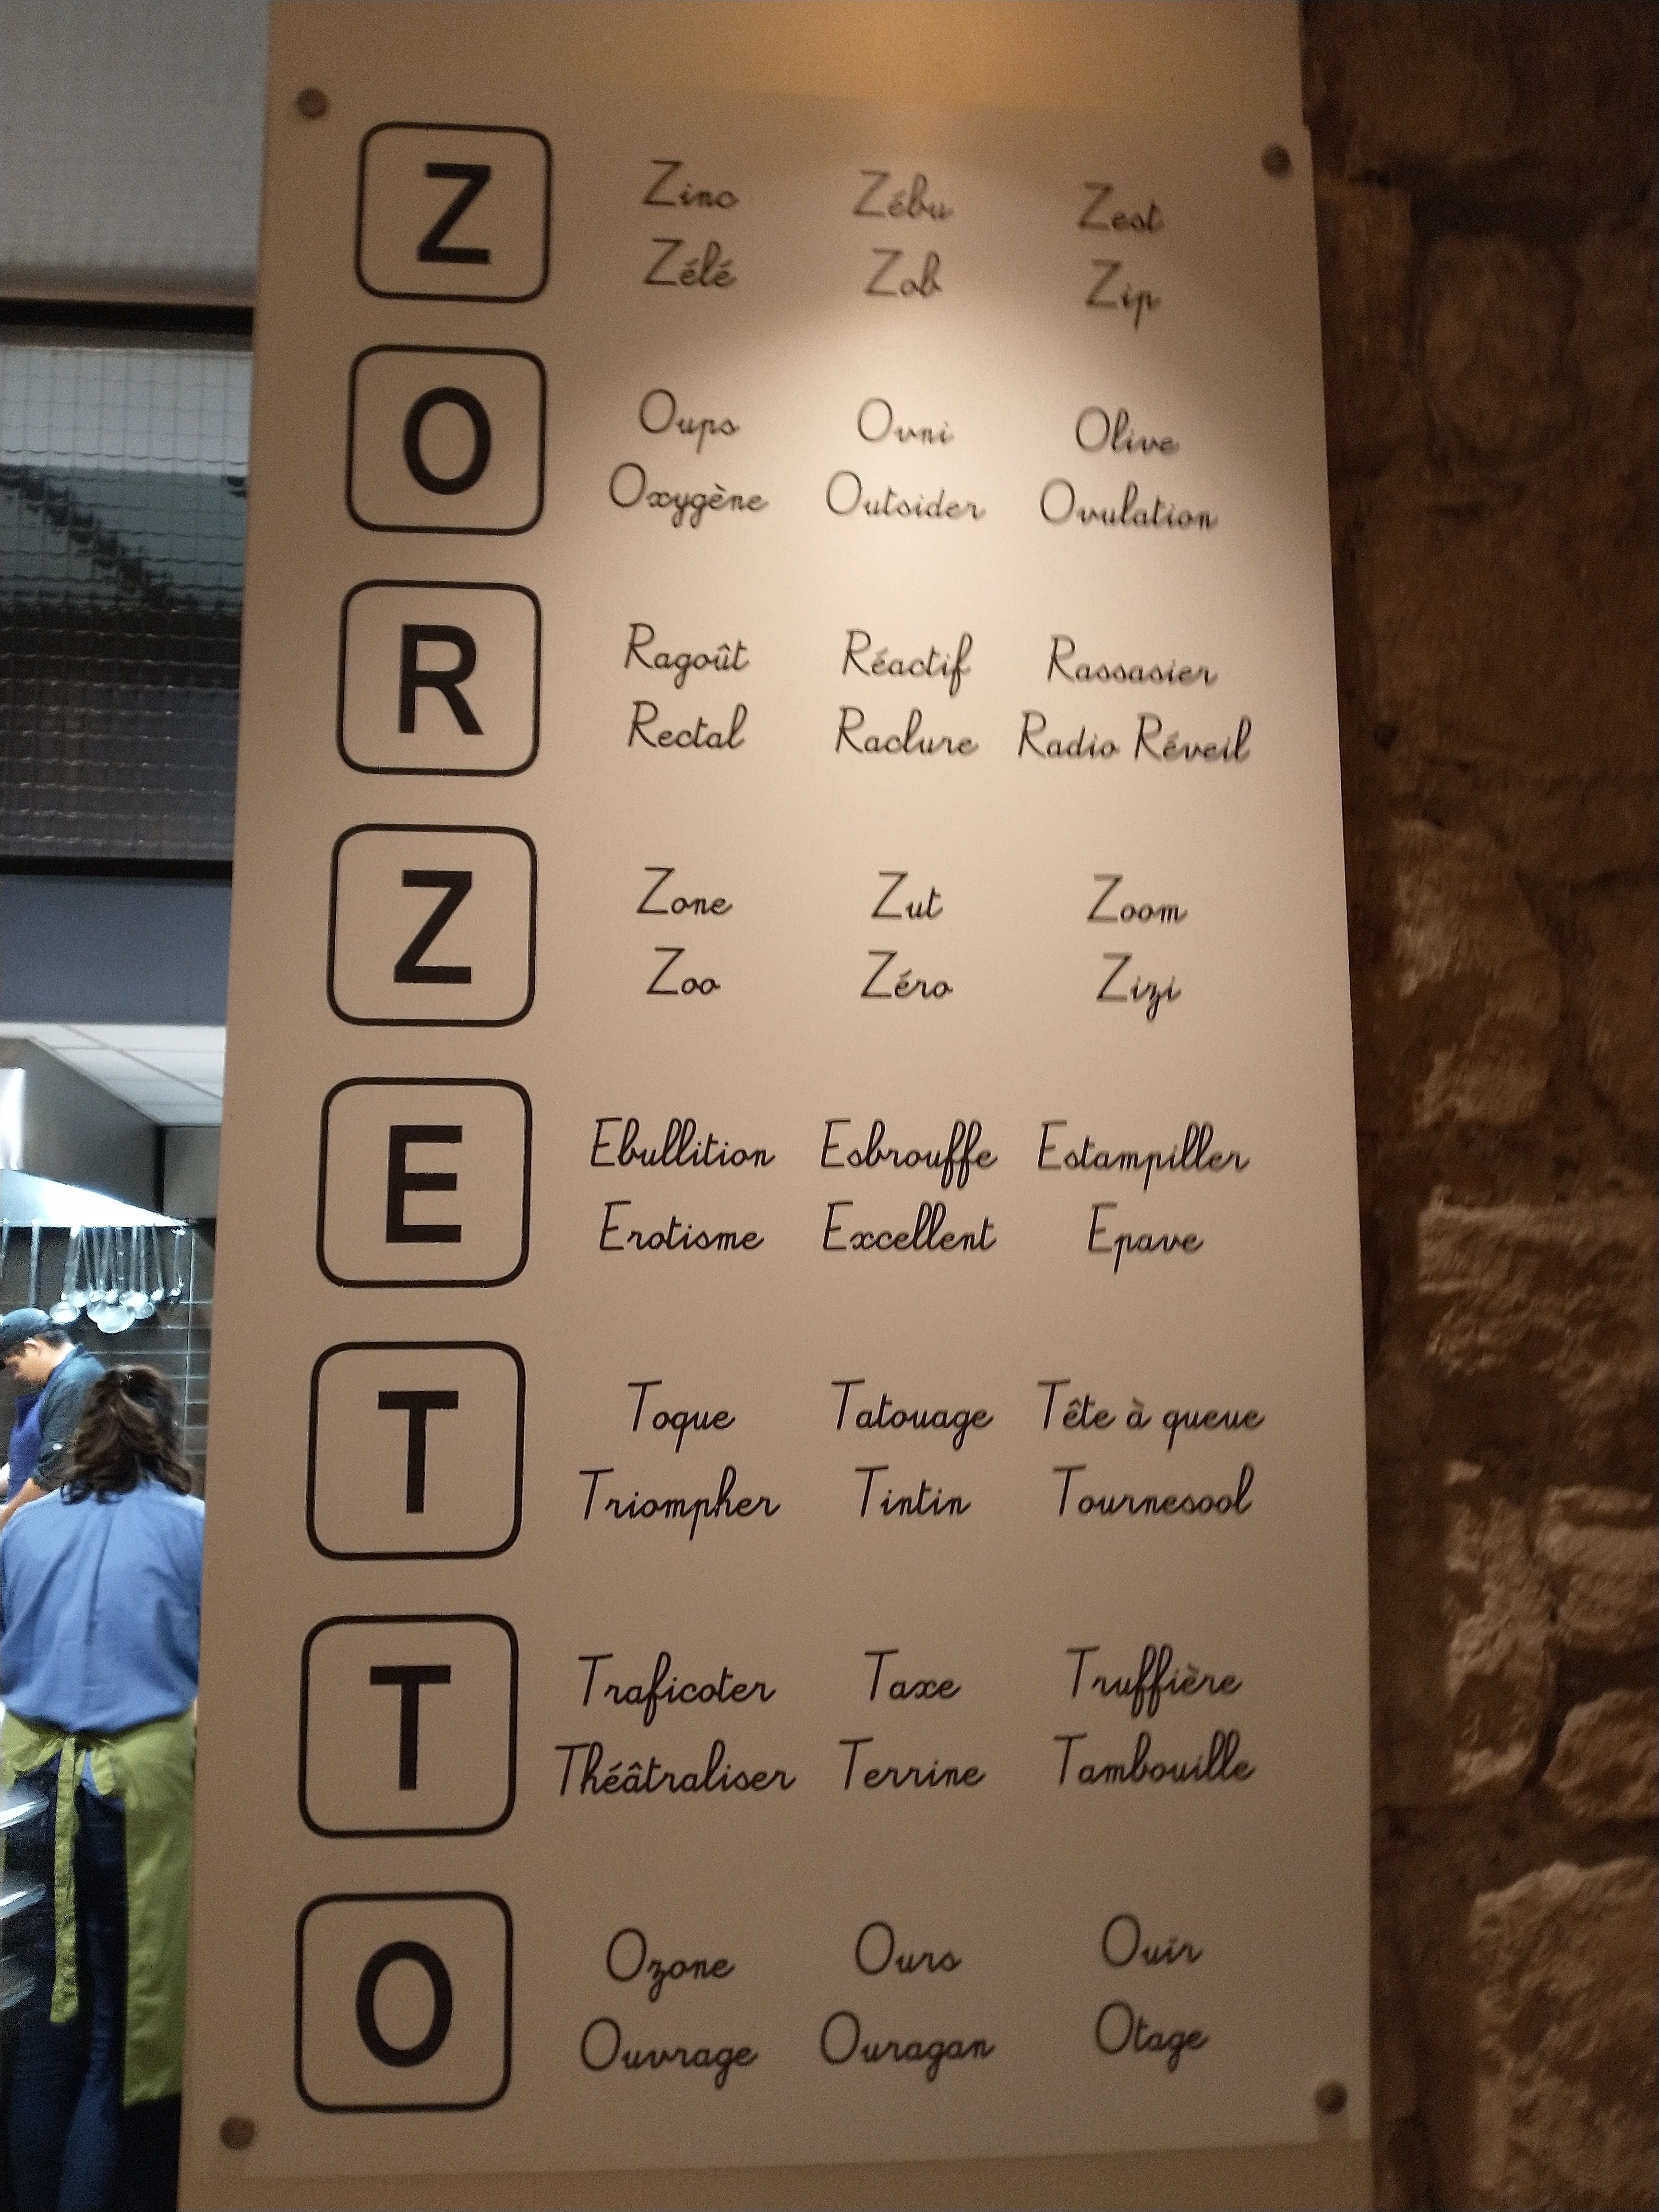 Z
Zinc Zébu Zest
Zélé Zob Zip
O
Oups Ovni Olive
Oxygène Outsider Ovulation
R
Ragoût Réactif Rassasier
Rectal Raclure Radio Réveil
Z
Zone Zut Zoom
Zoo Zéro Zizi
E
Ebullition Esbrouffe Estampiller
Erotisme Excellent Epave
T
Toque Tatouage Tête à queue
Triompher Tintin Tournesol
T
Traficoter Taxe Truffière
Théâtraliser Terrine Tambouille
O
Ozone Ours Ouïr
Ouvrage Ouragan Otage